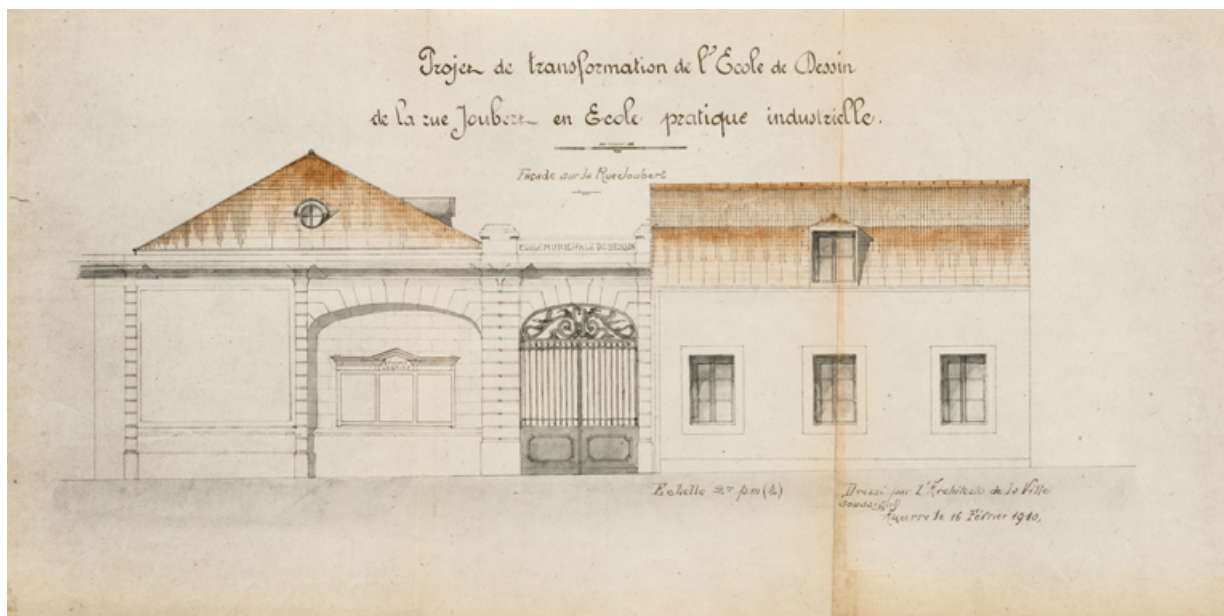 Projet de transformation de l'Ecole de Dessin
de la rue Joubert en Ecole pratique industrielle.
Façade sur la Rue Joubert
ECOLE MUNICIPALE DE DESSIN
Echelle 2 p.m
Dressé par l'Architecte de la Ville
soussigné
Auxerre le 16 Février 1910,